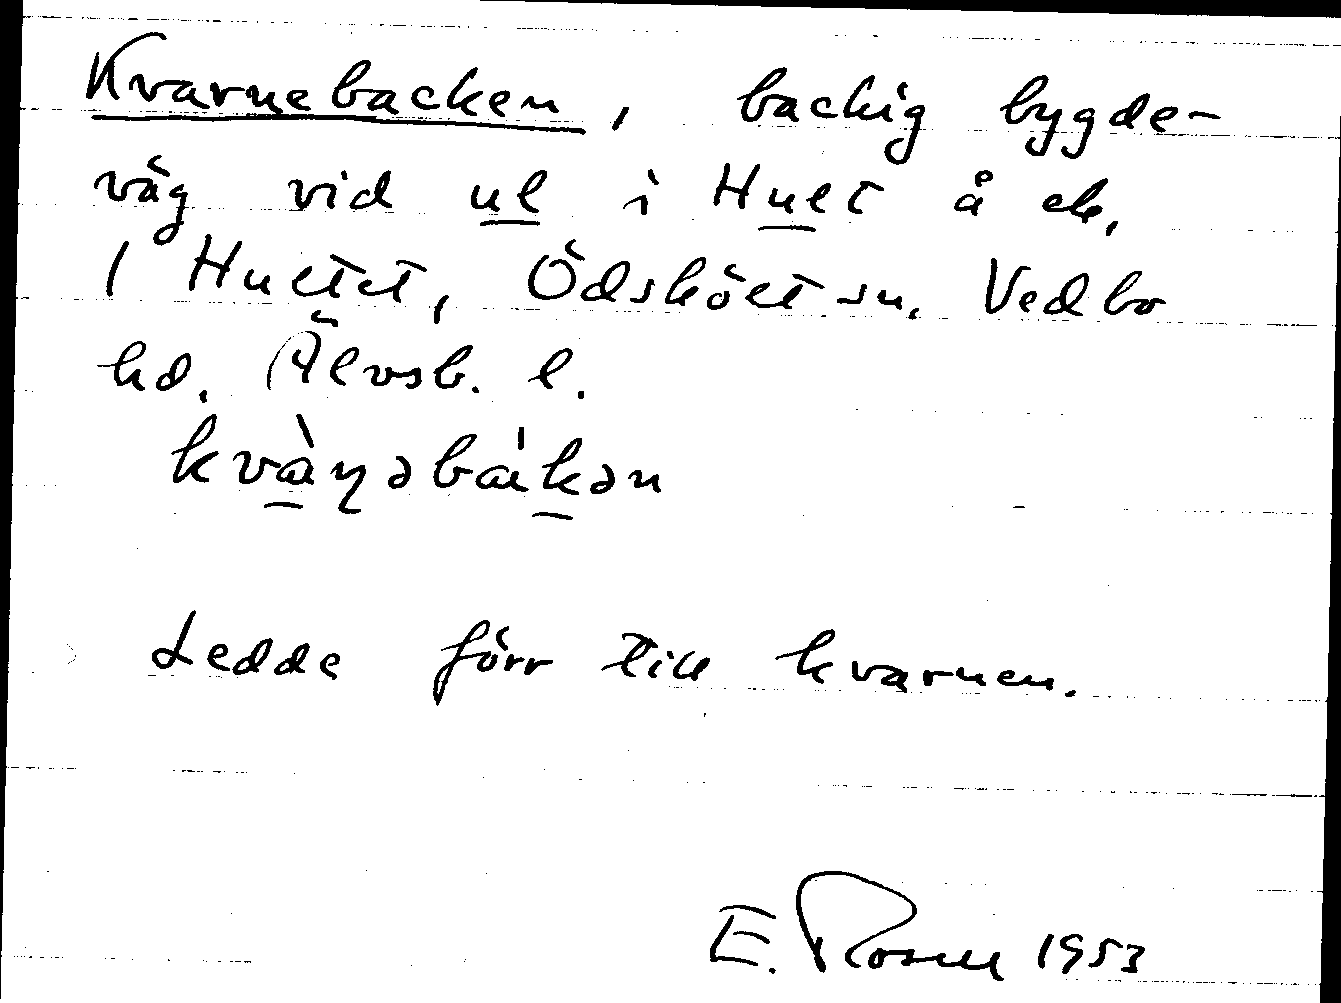 Kvarnebacken, backig bygde-
väg vid ul i Hult å ek.
1 Hultet, Ödskölt sn. Vedbo
hd. Älvsb. l.
kvàɳəbákən
Ledde förr till kvarnen.
E. Rosell 1953